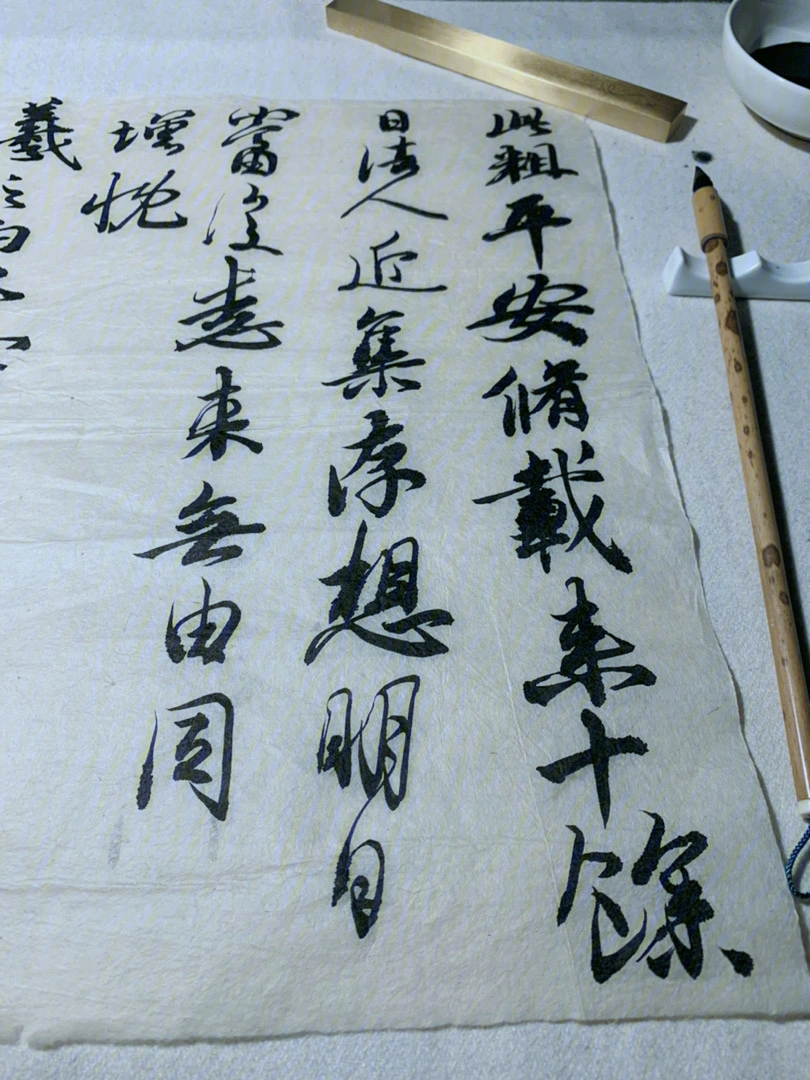 此粗平安脩載来十餘
日諸人近集存想明日
當復悉来無由同
增慨
羲之白